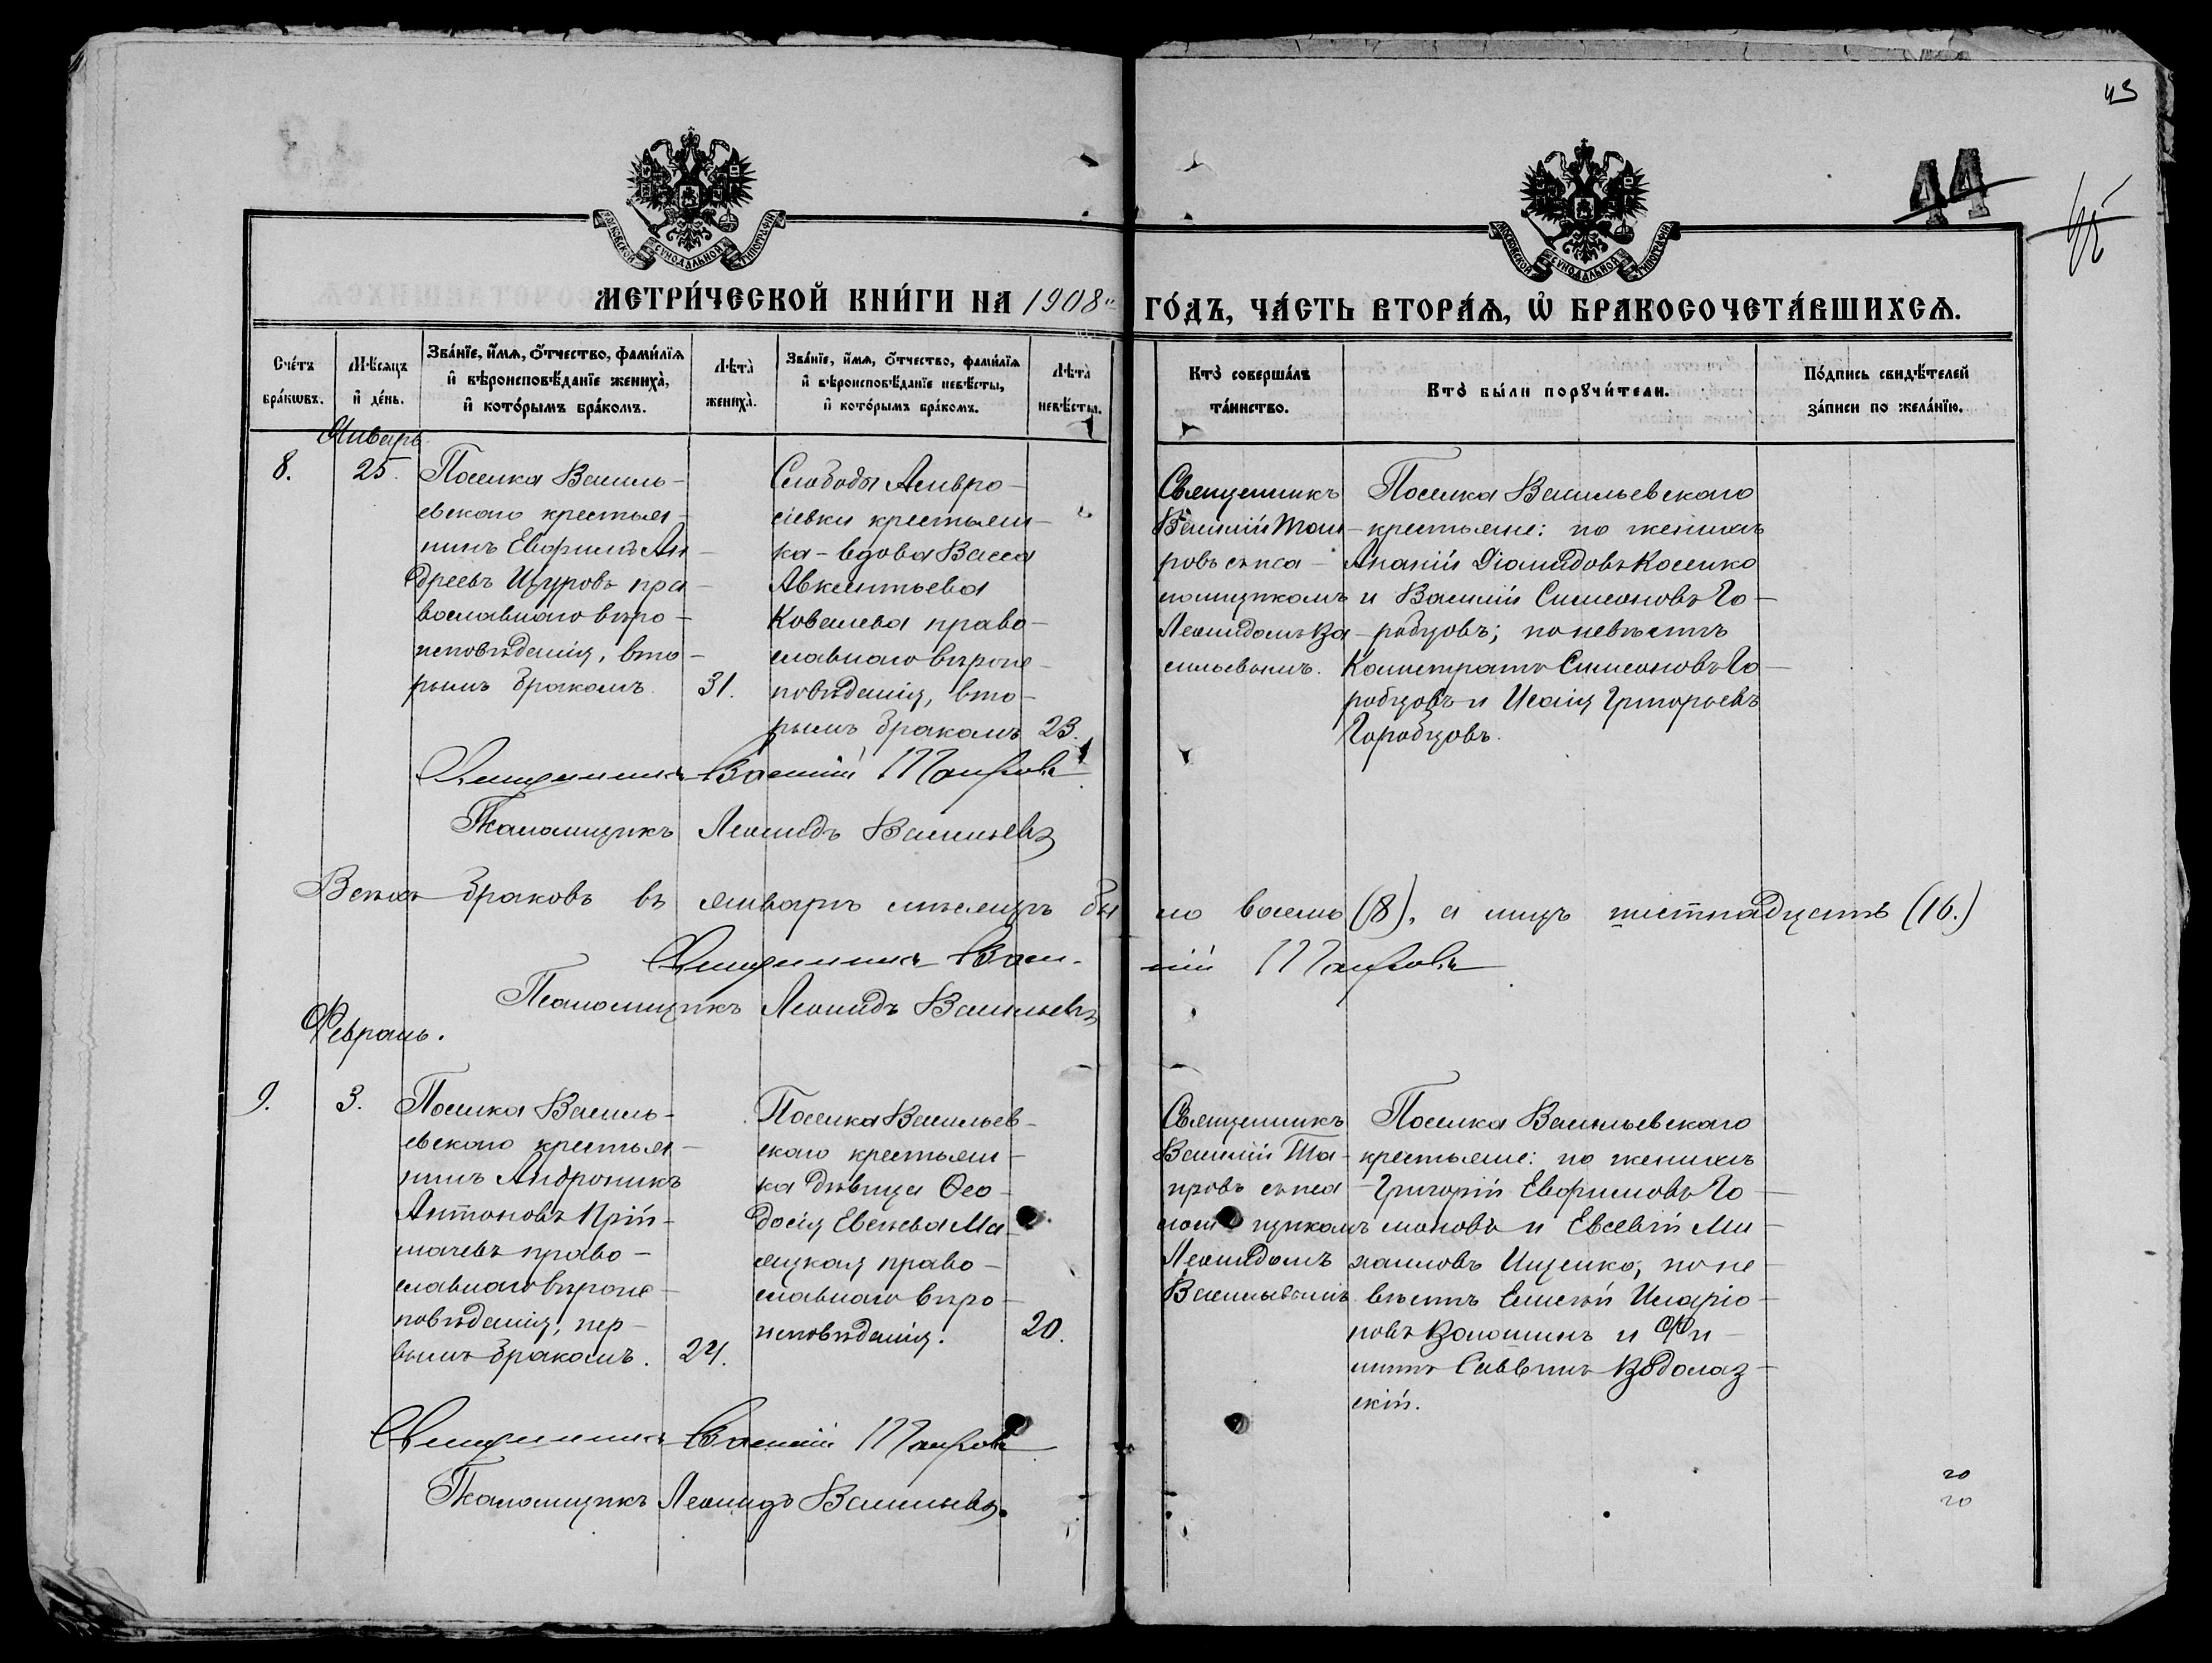 43
44
45
МОСКОВСКОЙ СѴНОДАЛЬНОЙ ТИПОГРАФІИ
МОСКОВСКОЙ СѴНОДАЛЬНОЙ ТИПОГРАФІИ
МЕТРИ́ЧЕСКОЙ КНИ́ГИ НА 1908
ГО́ДЪ, ЧА́СТЬ ВТОРА́Ѧ, Ѡ҆ БРАКОСОЧЕТА́ВШИХСѦ.
Сче́тъ
бра́кѡвъ.
Мѣ́сяцъ
и҆ де́нь.
Зва́нїе, и҆́мѧ, ѻ҆́тчество, фами́лїѧ
и҆ вѣроисповѣ́данїе жениха̀,
и҆ кото́рымъ бра́комъ.
Лѣта̀
жениха̀.
Зва́нїе, и҆́мѧ, ѻ҆́тчество, фами́лїѧ
и҆ вѣроисповѣ́данїе невѣ́сты,
и҆ кото́рымъ бра́комъ.
Лѣта̀
невѣ́сты.
Кто̀ соверша́лъ
та́инство.
Кто̀ бы́ли порꙋчи́тели.
По́дпись свидѣ́телей
за́писи по жела́нїю.
Январь
8.
25.
Поселка Василь-
евскаго крестья-
нинъ Евфимъ Ан-
дреевъ Щуровъ пра-
вославнаго вѣро-
исповѣданія, вто-
рымъ бракомъ.
31.
Слободы Амвро-
сіевки крестьян-
ка-вдова Васса
Авксентьева
Ковалева право-
славнаго вѣроис-
повѣданія, вто-
рымъ бракомъ
23.
Священникъ
Василій Таи-
ровъ съ пса-
ломщикомъ
Леонидомъ Ва-
сильевымъ.
Поселка Васильевскаго
крестьяне: по женихѣ
Ананій Діомидовъ Косенко
и Василій Симеоновъ Го-
робцовъ; по невѣстѣ
Калистратъ Симеоновъ Го-
робцовъ и Исаія Григорьевъ
Горобцовъ.
Священникъ Василій Таировъ
Псаломщикъ Леонидъ Васильевъ
Всѣхъ браковъ въ январѣ мѣсяцѣ бы
ло восемь (8), а лицъ шестнадцать (16.)
Священникъ Васи-
лій Таировъ
Псаломщикъ Леонидъ Васильевъ
Февраль.
9.
3.
Поселка Василь-
евскаго крестья-
нинъ Андроникъ
Антоновъ Прій-
мачевъ право-
славнаго вѣроис-
повѣданія, пер-
вымъ бракомъ.
24.
Поселка Васильев-
скаго крестьян-
ка дѣвица Ѳео-
досія Евсѣева Ма-
яцкая право-
славнаго вѣро-
исповѣданія.
20.
Священникъ
Василій Та-
ировъ съ пса-
ломщикомъ
Леонидомъ
Васильевымъ
Поселка Васильевскаго
крестьяне: по женихѣ
Григорій Евфимовъ Го-
моновъ и Евсевій Ми-
хаиловъ Ищенко; по не-
вѣстѣ Елисей Иларіо-
новъ Волошинъ и Фи-
липпъ Саввинъ Водолаз-
скій.
Священникъ Василій Таировъ
Псаломщикъ Леонидъ Васильевъ.
20
20